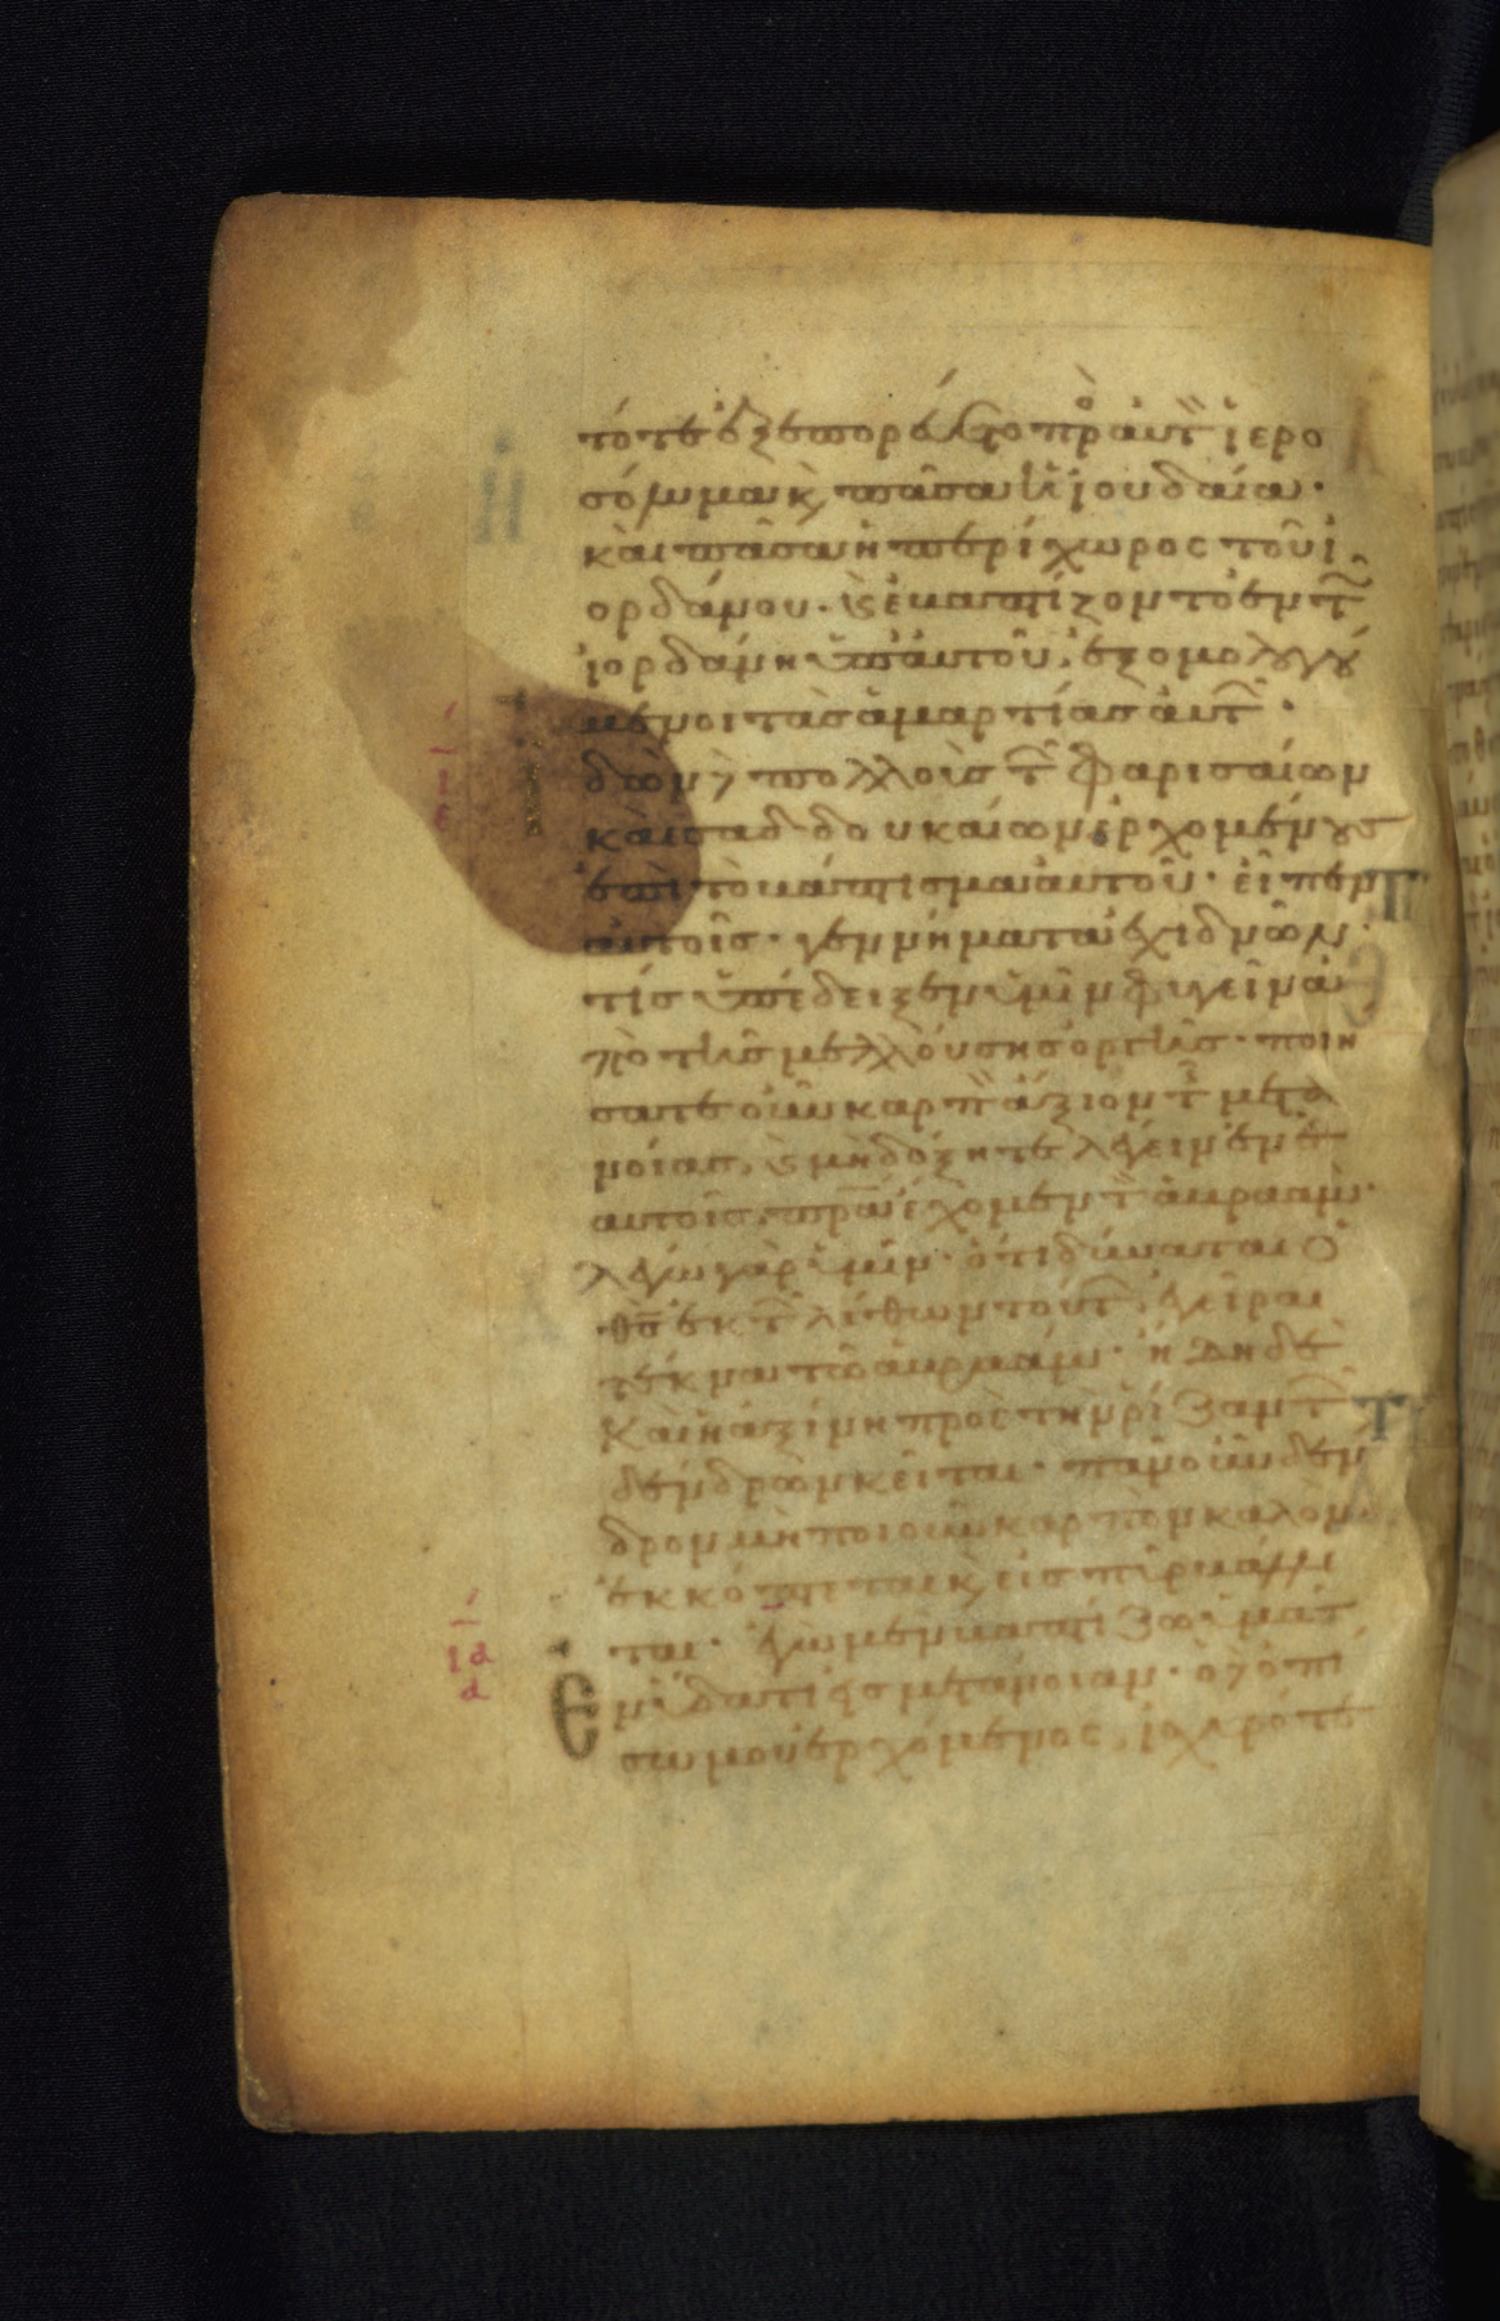 τότε ἐξεπορεύετο πρὸς αὐτὸν ἱερο
σόλυμα κ πᾶσα ἡ ἰουδαία·
καὶ πᾶσα ἡ περίχωρος τοῦ ἰ
ορδάνου· κ ἐβαπτίζοντο ἐν τῶ
ἰορδάνη ὑπ' αὐτοῦ, ἐξομολογού
μενοι τὰς ἁμαρτίας αὐτῶν·
ἰδὼν δὲ πολλοὺς τῶν φαρισαίων
καὶ σαδδουκαίων ἐρχομένους
ἐπὶ τὸ βάπτισμα αὐτοῦ· εἶπεν
αὐτοῖς· γεννήματα ἐχιδνῶν·
τίς ὑπέδειξεν ὑμῖν φυγεῖν ἀ
πὸ τῆς μελλούσης ὀργῆς· ποιή
σατε οὖν καρπὸν ἄξιον τῆς μετα
νοίας, κ μὴ δόξητε λέγειν ἐν ἑ
αυτοῖς, πρα ἔχομεν τὸν ἀβραάμ·
λέγω γὰρ ὑμῖν· ὅτι δύναται ὁ
θς ἐκ τῶν λίθων τούτων ἐγεῖραι
τέκνα τῶ ἀβραάμ· ἤδη δὲ
καὶ ἡ ἀξίνη πρὸς τὴν ῥίζαν τῶν
δένδρων κεῖται· πᾶν οὖν δέν
δρον μὴ ποιοῦν καρπὸν καλὸν
ἐκκόπτεται κ εἰς πῦρ βάλλε
ται· ἐγὼ μὲν βαπτίζω ὑμᾶς
ἐν ὕδατι εἰς μετάνοιαν· ὁ δὲ ὀπί
σω μου ἐρχόμενος, ἰσχυρότε
ια
α